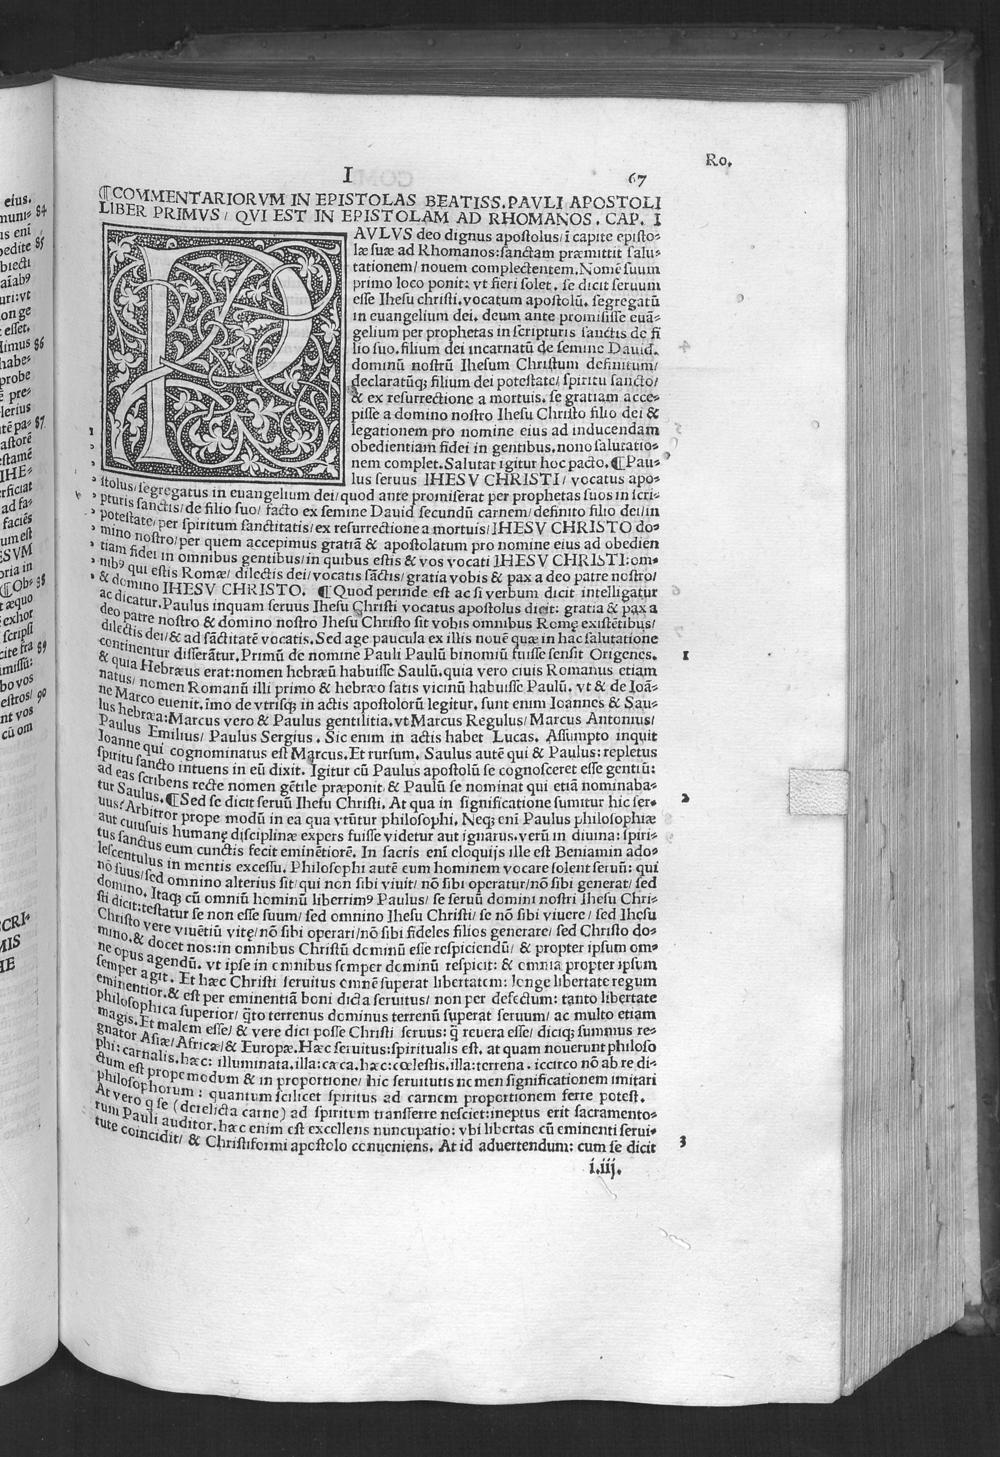 Ro.
I 67
¶COMMENTARIORVM IN EPISTOLAS BEATISS. PAVLI APOSTOLI
LIBER PRIMVS/ QVI EST IN EPISTOLAM AD RHOMANOS. CAP. I
PAVLVS deo dignus apostolus/ ī capite episto-
læ suæ ad Rhomanos: sanctam præmittit salu-
tationem/ nouem complectentem. Nomē suum
primo loco ponit: vt fieri solet. se dicit seruum
esse Ihesu christi. vocatum apostolū. segregatū
in euangelium dei. deum ante promisisse euā-
gelium per prophetas in scripturis sanctis de fi
lio suo. filium dei incarnatū de semine Dauid.
dominū nostrū Ihesum Christum definitum/
declaratūq; filium dei potestate/ spiritu sancto/
& ex resurrectione a mortuis. se gratiam acce-
pisse a domino nostro Ihesu Christo filio dei &
legationem pro nomine eius ad inducendam
obedientiam fidei in gentibus. nono salutatio-
nem complet. Salutat igitur hoc pacto. ¶Pau-
lus seruus IHESV CHRISTI/ vocatus apo-
stolus/ segregatus in euangelium dei/ quod ante promiserat per prophetas suos in scri-
pturis sanctis/ de filio suo/ facto ex semine Dauid secundū carnem/ definito filio dei/ in
potestate/ per spiritum sanctitatis/ ex resurrectione a mortuis/ IHESV CHRISTO do-
mino nostro/ per quem accepimus gratiā & apostolatum pro nomine eius ad obedien
tiam fidei in omnibus gentibus/ in quibus estis & vos vocati IHESV CHRISTI: om-
nibꝰ qui estis Romæ/ dilectis dei/ vocatis sāctis/ gratia vobis & pax a deo patre nostro/
& domino IHESV CHRISTO. ¶Quod perinde est ac si verbum dicit intelligatur
ac dicatur. Paulus inquam seruus Ihesu Christi vocatus apostolus dicit: gratia & pax a
deo patre nostro & domino nostro Ihesu Christo sit vobis omnibus Romę existētibus/
dilectis dei/ & ad sāctitatē vocatis. Sed age paucula ex illis nouē quæ in hac salutatione
continentur disserātur. Primū de nomine Pauli Paulū binomiū fuisse sensit Origenes.
& quia Hebræus erat: nomen hebræū habuisse Saulū. quia vero ciuis Romanus etiam
natus/ nomen Romanū illi primo & hebræo satis vicinū habuisse Paulū. vt & de Ioā-
ne Marco euenit. imo de vtrisq; in actis apostolorū legitur. sunt enim Ioannes & Sau-
lus hebræa: Marcus vero & Paulus gentilitia. vt Marcus Regulus/ Marcus Antonius/
Paulus Emilius/ Paulus Sergius. Sic enim in actis habet Lucas. Assumpto inquit
Ioanne qui cognominatus est Marcus. Et rursum. Saulus autē qui & Paulus: repletus
spiritu sancto intuens in eū dixit. Igitur cū Paulus apostolū se cognosceret esse gentiū:
ad eas scribens recte nomen gētile præponit. & Paulū se nominat qui etiā nominaba-
tur Saulus. ¶Sed se dicit seruū Ihesu Christi. At qua in significatione sumitur hic ser-
uus? Arbitror prope modū in ea qua vtūtur philosophi. Neq; enī Paulus philosophiæ
aut cuiusuis humanę disciplinæ expers fuisse videtur aut ignarus. verū in diuina: spiri-
tus sanctus eum cunctis fecit eminētiorē. In sacris enī eloquijs ille est Beniamin ado-
lescentulus in mentis excessu. Philosophi autē cum hominem vocare solent seruū: qui
nō suus/ sed omnino alterius sit/ qui non sibi viuit/ nō sibi operatur/ nō sibi generat/ sed
domino. Itaq; cū omniū hominū liberrimꝰ Paulus/ se seruū domini nostri Ihesu Chri-
sti dicit: testatur se non esse suum/ sed omnino Ihesu Christi/ se nō sibi viuere/ sed Ihesu
Christo vere viuētiū vitę/ nō sibi operari/ nō sibi fideles filios generare/ sed Christo do-
mino. & docet nos: in omnibus Christū dominū esse respiciendū/ & propter ipsum om-
ne opus agendū. vt ipse in omnibus semper dominū respicit: & omnia propter ipsum
semper agit. Et hæc Christi seruitus omnē superat libertatem: longe libertate regum
eminentior. & est per eminentiā boni dicta seruitus/ non per defectum: tanto libertate
philosophica superior/ q̃to terrenus dominus terrenū superat seruum/ ac multo etiam
magis. Et malem esse/ & vere dici posse Christi seruus: q̃ reuera esse/ diciq; summus re-
gnator Asiæ/ Africæ/ & Europæ. Hæc seruitus: spiritualis est. at quam nouerunt philoso
phi: carnalis. hæc: illuminata. illa: cæca. hæc: cœlestis. illa: terrena. iccirco nō ab re di-
ctum est propemodum & in proportione/ hic seruitutis nomen significationem imitari
philosophorum: quantum scilicet spiritus ad carnem proportionem ferre potest.
At vero q̃ se (derelicta carne) ad spiritum transferre nesciet: ineptus erit sacramento-
rum Pauli auditor. hæc enim est excellens nuncupatio: vbi libertas cū eminenti serui-
tute coincidit/ & Christiformi apostolo conueniens. At id aduertendum: cum se dicit
i.iij.
1
1
2
3
eius.
84
85
86
87
88
89
90